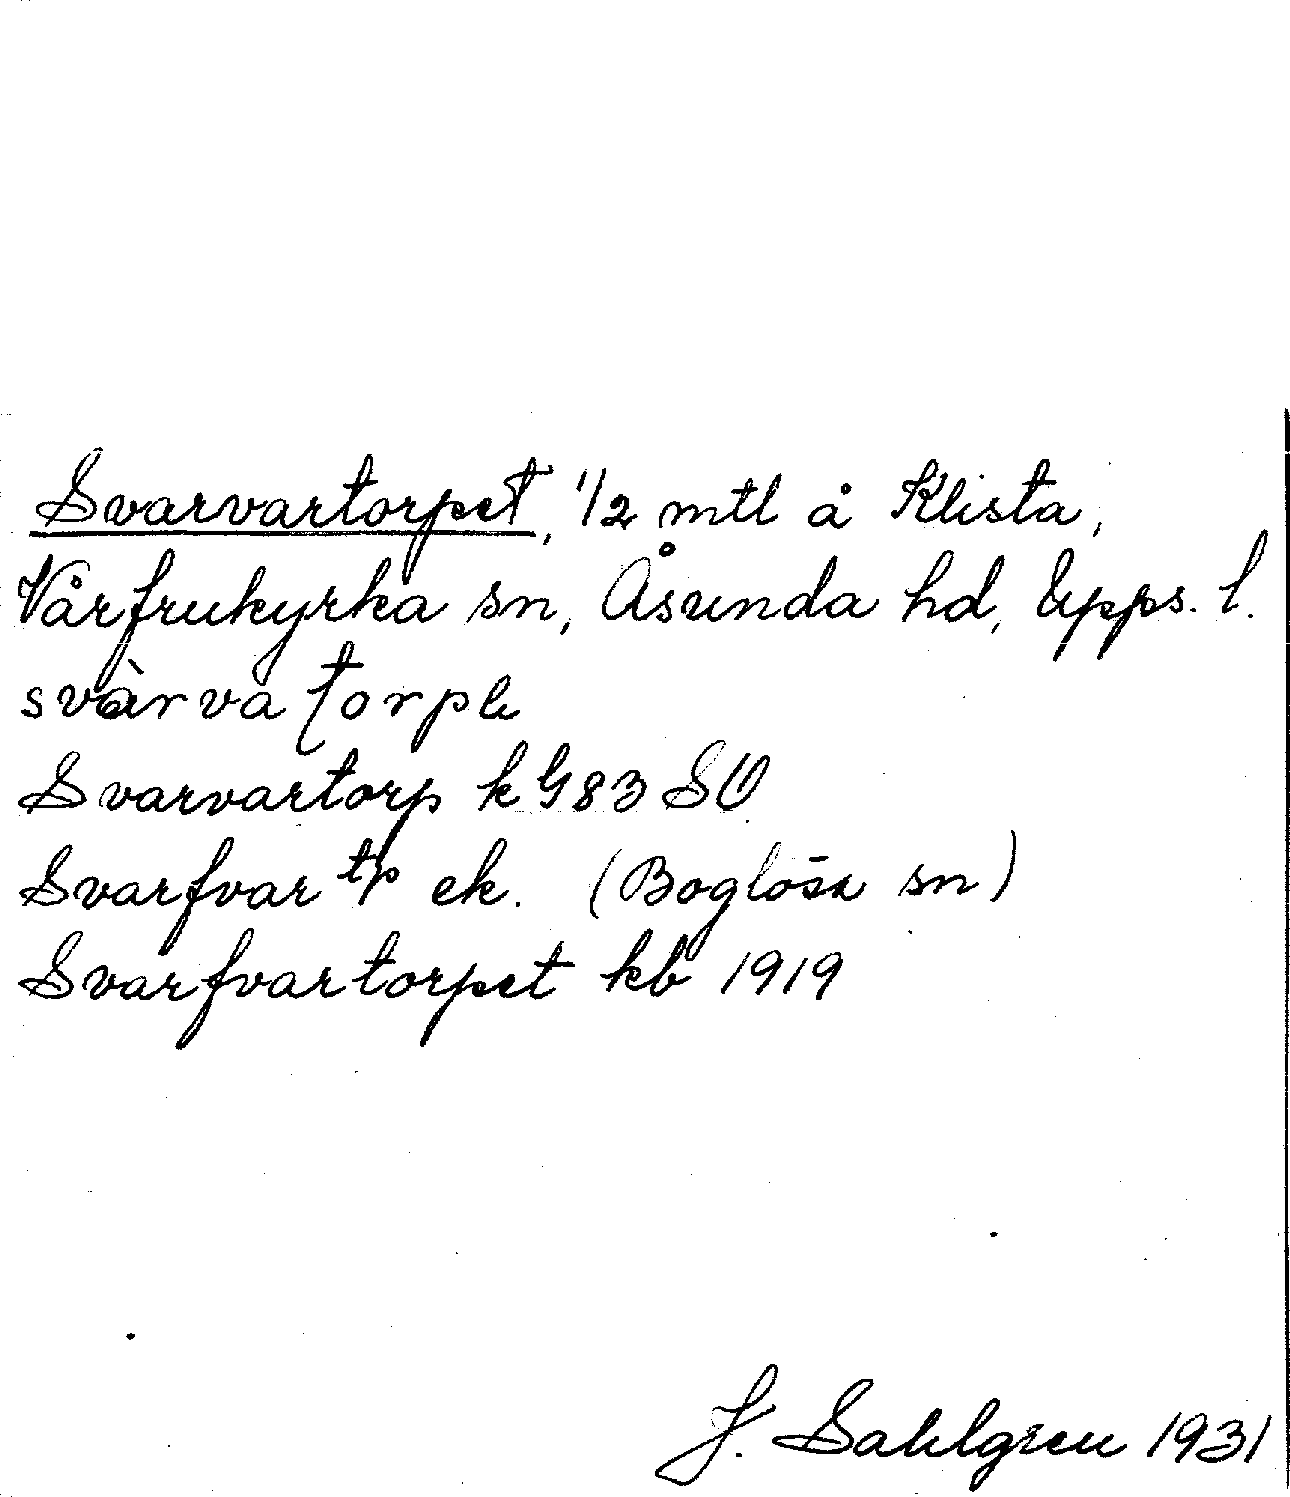 Svarvartorpet, 1/2 mtl å Klista,
Vårfrukyrka sn, Åsunda hd, Upps. l.
svàrva torpe
Svarvartorp k G83 SO
Svarfvartp ek. (Boglösa sn)
Svarfvartorpet kb 1919
J. Sahlgren 1931